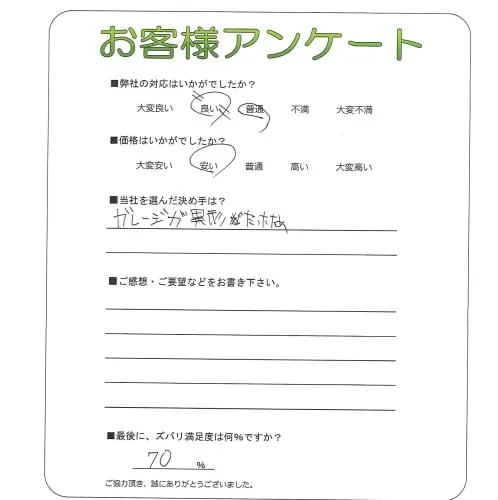 お客様アンケート
■弊社の対応はいかがでしたか？
大変良い 良い 普通 不満 大変不満
■価格はいかがでしたか？
大変安い 安い 普通 高い 大変高い
■当社を選んだ決め手は？
ガレージが異形だった為
■ご感想・ご要望などをお書き下さい。
■最後に、ズバリ満足度は何%ですか？
70 %
ご協力頂き、誠にありがとうございました。